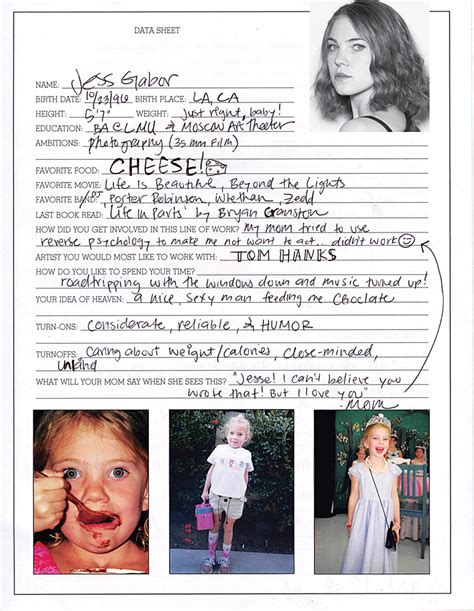 DATA SHEET
NAME: Jess Gabor
BIRTH DATE: 10/23/96 BIRTH PLACE: LA, CA
HEIGHT: 5'7" WEIGHT: Just right, baby!
EDUCATION: BA @ LMU & Moscow Art Theater
AMBITIONS: photography (35mm Film)
FAVORITE FOOD: CHEESE!
FAVORITE MOVIE: Life is Beautiful, Beyond the Lights
FAVORITE BAND: /DJ Porter Robinson, Whethan, Zedd
LAST BOOK READ: 'Life in Parts' by Bryan Cranston
HOW DID YOU GET INVOLVED IN THIS LINE OF WORK? My mom tried to use
reverse psychology to make me not want to act... didn't work
ARTIST YOU WOULD MOST LIKE TO WORK WITH: TOM HANKS
HOW DO YOU LIKE TO SPEND YOUR TIME?
roadtripping with the windows down and music turned up!
YOUR IDEA OF HEAVEN: a nice, sexy man feeding me Choclate
TURN-ONS: considerate, reliable, & HUMOR
TURNOFFS: caring about weight/calories, close-minded,
unkind
WHAT WILL YOUR MOM SAY WHEN SHE SEES THIS? "Jesse! I can't believe you
wrote that! But I love you"
-Mom